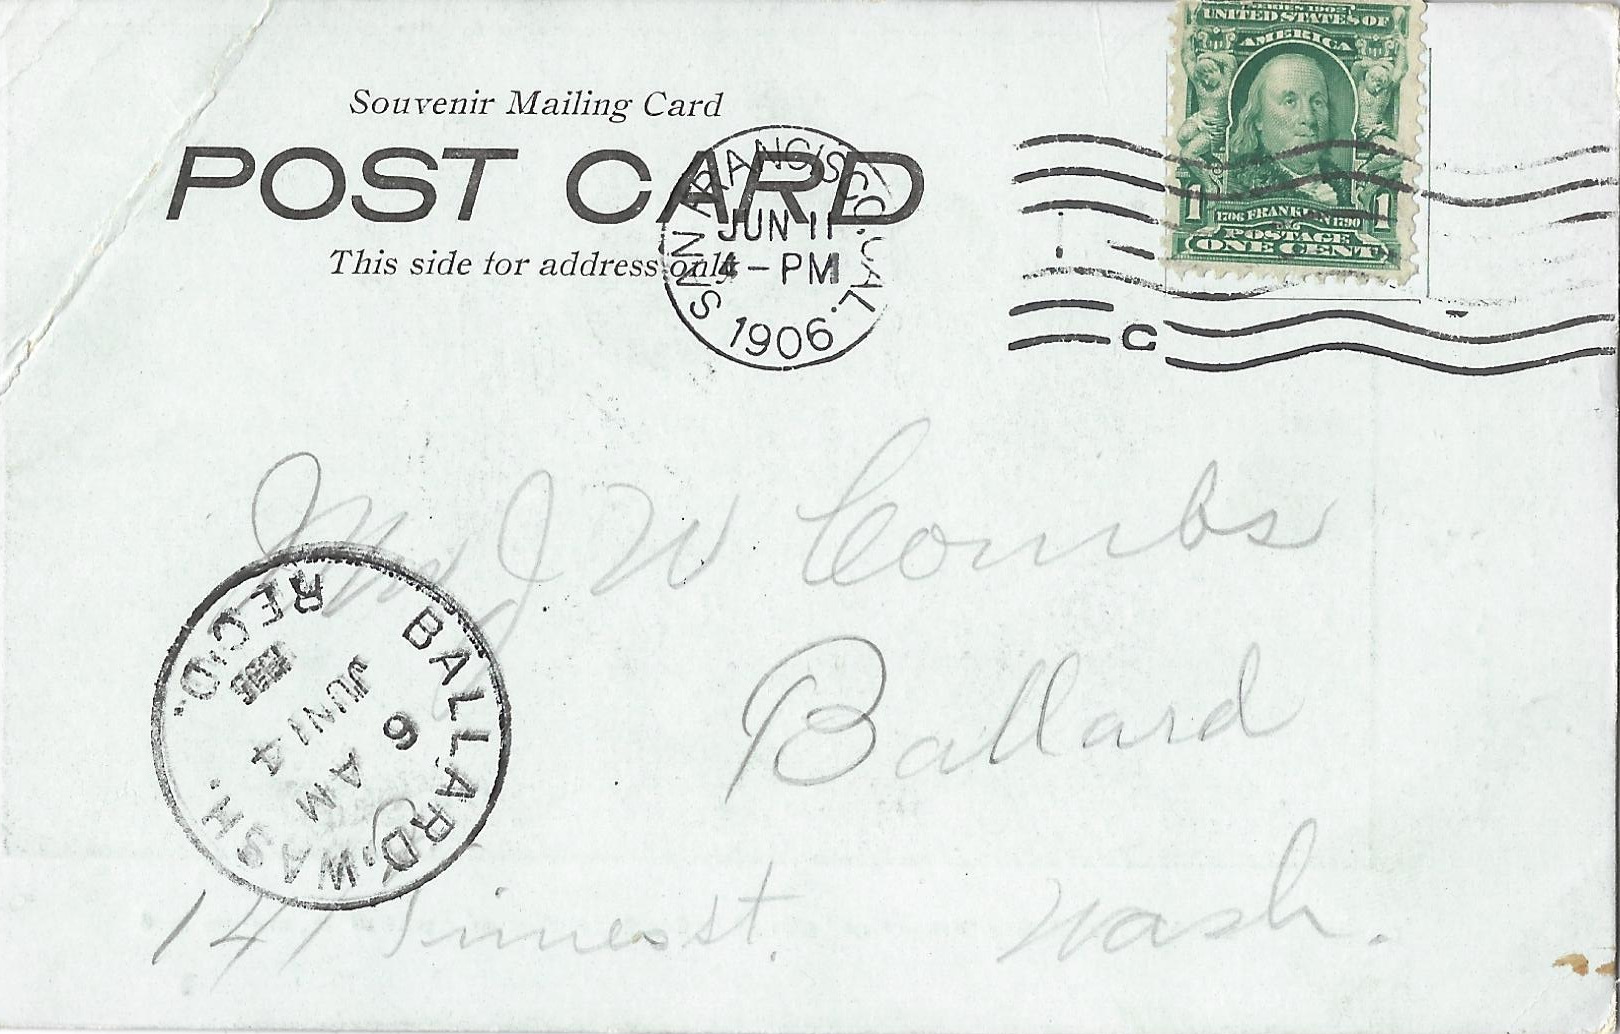 SERIES 1902
UNITED STATES OF
AMERICA
1 1
1706 FRANKLIN 1790
POSTAGE
ONE CENT
Souvenir Mailing Card
POST CARD
This side for address only
SAN FRANCISCO, CAL.
JUN 11
4-PM
1906
C
J W Combs
Ballard
Wash.
141 st.
BALLARD, WASH.
6 AM
JUN 14
REC'D.